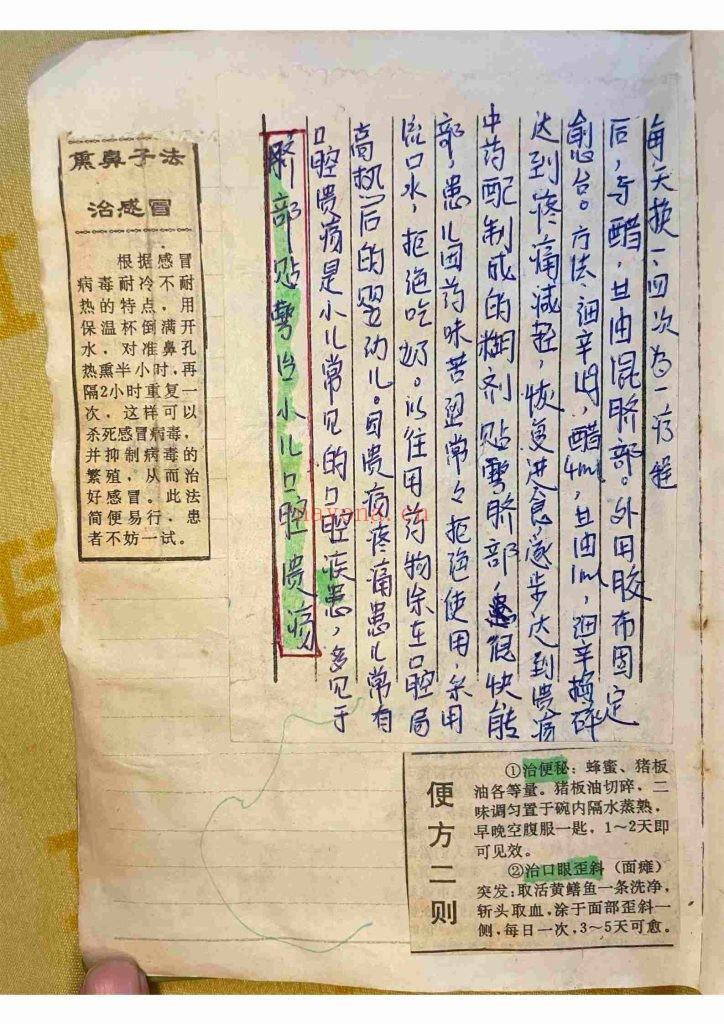 熏鼻子法
治感冒
根据感冒
病毒耐冷不耐
热的特点，用
保温杯倒满开
水，对准鼻孔
热熏半小时，再
隔2小时重复一
次，这样可以
杀死感冒病毒，
并抑制病毒的
繁殖，从而治
好感冒。此法
简便易行，患
者不妨一试。
脐部贴敷治小儿口腔溃疡
口腔溃疡是小儿常见的口腔疾患，多见于
高热后的婴幼儿。因溃疡疼痛患儿常有
流口水，拒绝吃奶。以往用药物涂在口腔局
部，患儿因药味苦涩常々拒绝使用，采用
中药配制成的糊剂贴敷脐部，很快能
达到疼痛减轻，恢复进食，逐步达到溃疡
愈合。方法：细辛，醋4ml，甘油1ml，细辛捣碎
后，与醋，甘油混脐部。外用胶布固定
每天换一，四次为一疗程
便方二则
①治便秘：蜂蜜、猪板
油各等量。猪板油切碎，二
味调匀置于碗内隔水蒸熟，
早晚空腹服一匙，1～2天即
可见效。
②治口眼歪斜（面瘫）
突发：取活黄鳝鱼一条洗净，
斩头取血，涂于面部歪斜一
侧，每日一次，3～5天可愈。